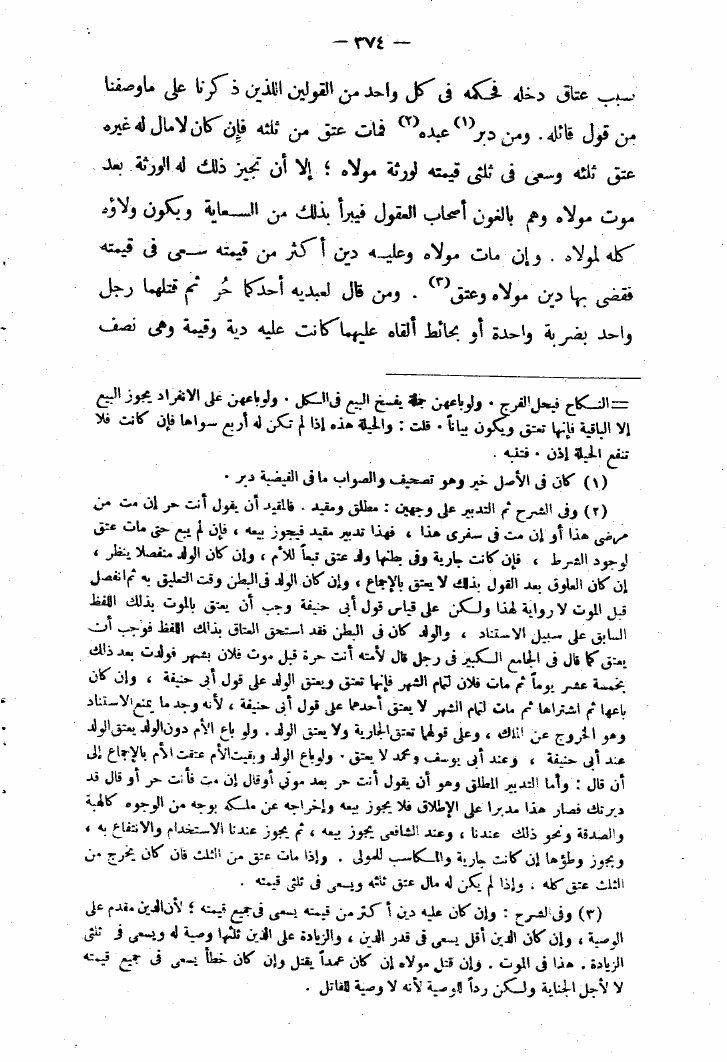 — ٣٧٤ —
سبب عتاق دخله فحكمه فى كل واحد من القولين اللذين ذكرنا على ماوصفنا
من قول قائله. ومن دبر(١) عبده(٢) فمات عتق من ثلثه فإن كان لامال له غيره
عتق ثلثه وسعى فى ثلثى قيمته لورثة مولاه ؛ إلا أن تجيز ذلك له الورثة بعد
موت مولاه وهم بالغون أصحاب العقول فيبرأ بذلك من السعاية ويكون ولاؤه
كله لمولاه . وإن مات مولاه وعليه دين أكثر من قيمته سعى فى قيمته
فقضى بها دين مولاه وعتق(٣) . ومن قال لعبديه أحدكما حُر ثم قتلهما رجل
واحد بضربة واحدة أو بحائط ألقاه عليهما كانت عليه دية وقيمة وهى نصف
= النكاح فيحل الفرج . ولو باعهن جملة يفسخ البيع فى الكل . ولو باعهن على الانفراد يجوز البيع
إلا الباقية فإنها تعتق ويكون بياناً . قلت : والحيلة هذه إذا لم تكن له أربع سواها فإن كانت فلا
تنفع الحيلة إذن . فتنبه .
(١) كان فى الأصل خير وهو تصحيف والصواب ما فى الفيضية دبر .
(٢) وفى الشرح ثم التدبير على وجهين : مطلق ومقيد . فالمقيد أن يقول أنت حر إن مت من
مرضى هذا أو إن مت فى سفرى هذا ، فهذا تدبير مقيد فيجوز بيعه ، فإن لم يبع حتى مات عتق
لوجود الشرط ، فإن كانت جارية وفى بطنها ولد عتق تبعاً للأم ، وإن كان الولد منفصلا ينظر ،
إن كان العلوق بعد القول بذلك لا يعتق بالإجماع ، وإن كان الولد فى البطن وقت التعليق به ثم انفصل
قبل الموت لا رواية لهذا ولكن على قياس قول أبى حنيفة وجب أن يعتق بالموت بذلك اللفظ
السابق على سبيل الاستناد ، والولد كان فى البطن فقد استحق العتاق بذلك اللفظ فوجب أن
يعتق كما قال فى الجامع الكبير فى رجل قال لأمته أنت حرة قبل موت فلان بشهر فولدت بعد ذلك
بخمسة عشر يوماً ثم مات فلان لتمام الشهر فإنها تعتق ويعتق الولد على قول أبى حنيفة ، وإن كان
باعها ثم اشتراها ثم مات لتمام الشهر لا يعتق أحدهما على قول أبى حنيفة ، لأنه وجد ما يمنع الاستناد
وهو الخروج عن الملك ، وعلى قولهما تعتق الجارية ولا يعتق الولد . ولو باع الأم دون الولد يعتق الولد
عند أبى حنيفة ، وعند أبى يوسف ومحمد لا يعتق . ولو باع الولد وبقيت الأم عتقت الأم بالإجماع إلى
أن قال : وأما التدبير المطلق وهو أن يقول أنت حر بعد موتى أو قال إن مت فأنت حر أو قال قد
دبرتك فصار هذا مدبرا على الإطلاق فلا يجوز بيعه وإخراجه عن ملكه بوجه من الوجوه كالهبة
والصدقة ونحو ذلك عندنا ، وعند الشافعى يجوز بيعه ، ثم يجوز عندنا الاستخدام والانتفاع به ،
ويجوز وطؤها إن كانت جارية والمكاسب للمولى . وإذا مات عتق من الثلث فان كان يخرج من
الثلث عتق كله . وإذا لم يكن له مال عتق ثلثه ويسعى فى ثلثى قيمته .
(٣) وفى الشرح : وإن كان عليه دين أكثر من قيمته يسعى فى جميع قيمته ؛ لأن الدين مقدم على
الوصية ، وإن كان الدين أقل يسعى فى قدر الدين ، والزيادة على الدين ثلثها وصية له ويسعى فى ثلثى
الزيادة . هذا فى الموت . وإن قتل مولاه إن كان عمداً يقتل وإن كان خطأ يسعى فى جميع قيمته
لا لأجل الجناية ولكن رداً للوصية لأنه لا وصية للقاتل .